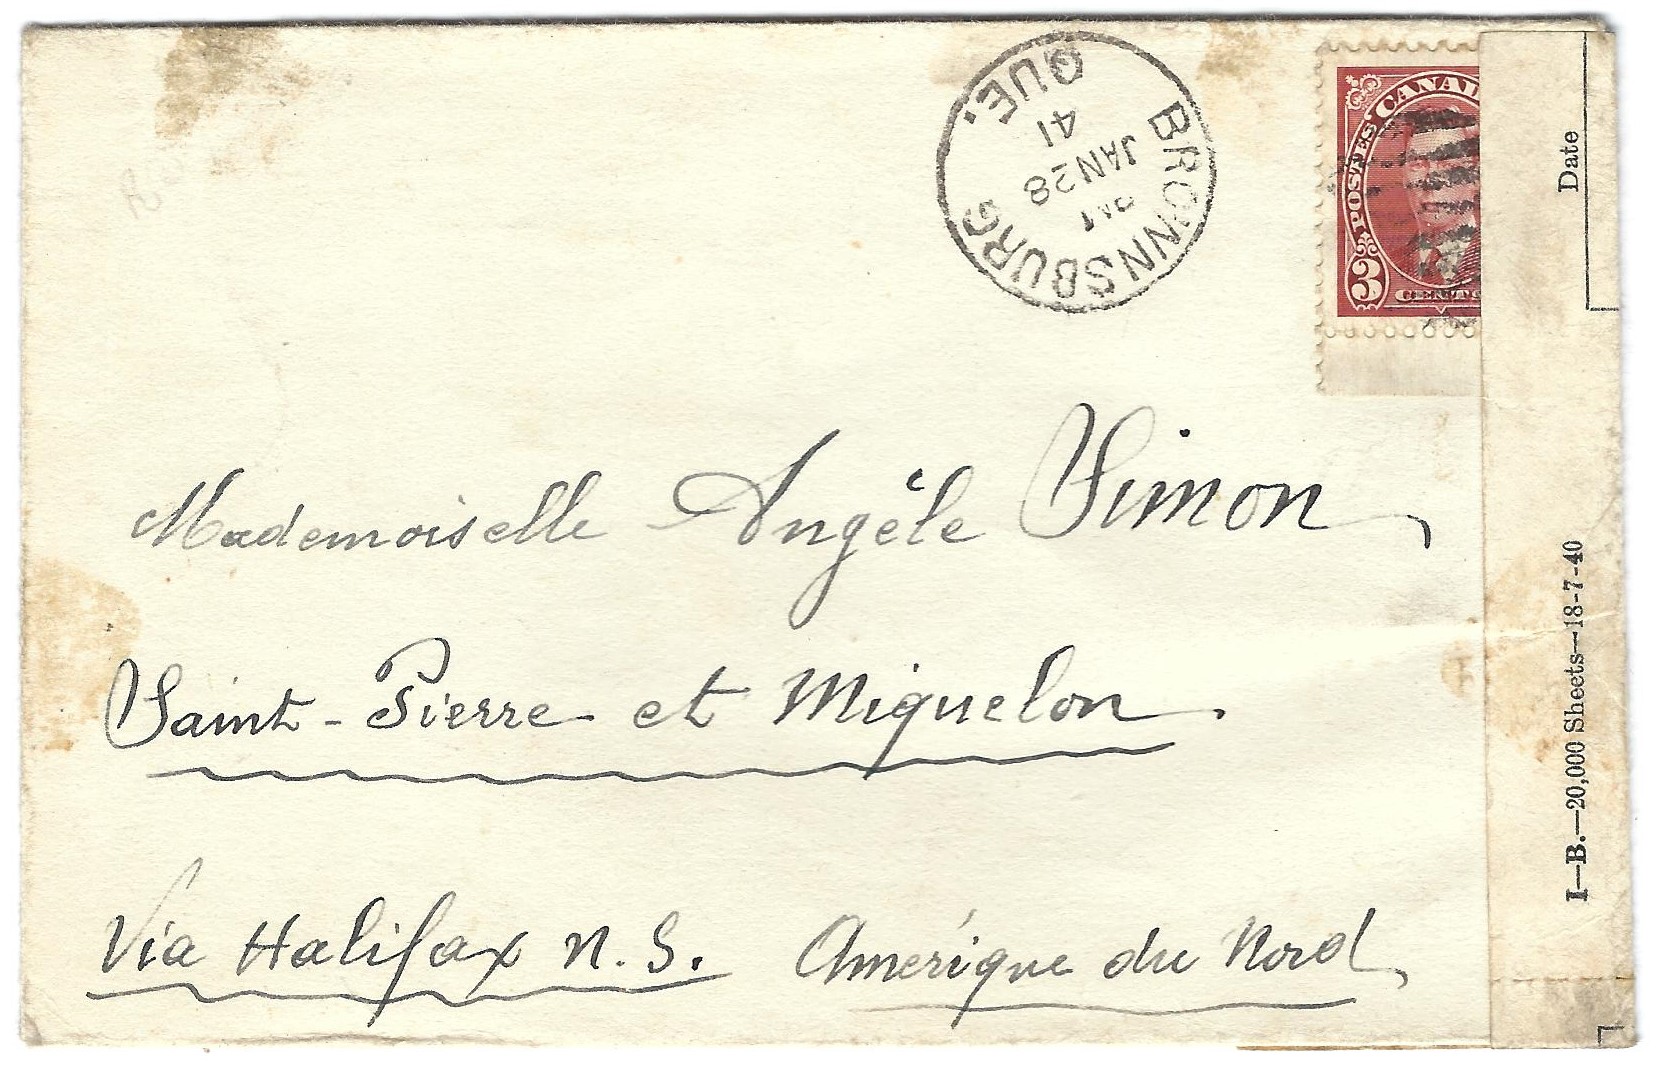 BROWNSBURG
QUE.
PM
JAN 28
41
POSTES CANADA
3
CENTS
Date
Mademoiselle Angèle Simon,
Saint-Pierre et Miquelon.
Via Halifax N.S. Amérique du Nord,
I—B.—20,000 Sheets—18-7-40